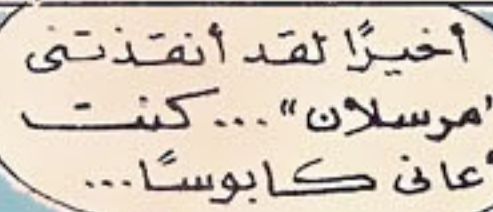 أخيرًا لقد أنقذتنى
"مرسلان"... كنت
أعانى كابوسًا...